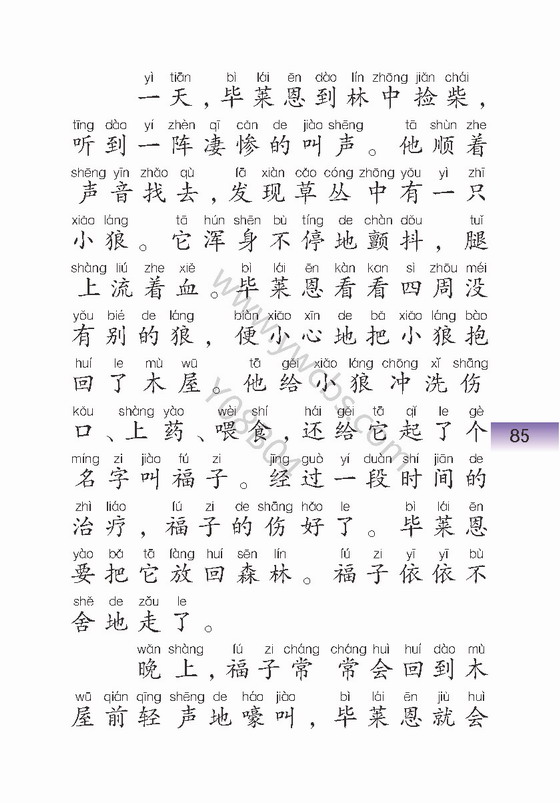 yì tiān bì lái ēn dào lín zhōng jiǎn chái
一天，毕莱恩到林中捡柴，
tīng dào yí zhèn qī cǎn de jiào shēng tā shùn zhe
听到一阵凄惨的叫声。他顺着
shēng yīn zhǎo qù fā xiàn cǎo cóng zhōng yǒu yì zhī
声音找去，发现草丛中有一只
xiǎo láng tā hún shēn bù tíng de chàn dǒu tuǐ
小狼。它浑身不停地颤抖，腿
shàng liú zhe xiě bì lái ēn kàn kan sì zhōu méi
上流着血。毕莱恩看看四周没
yǒu bié de láng biàn xiǎo xīn de bǎ xiǎo láng bào
有别的狼，便小心地把小狼抱
huí le mù wū tā gěi xiǎo láng chōng xǐ shāng
回了木屋。他给小狼冲洗伤
kǒu shàng yào wèi shí hái gěi tā qǐ le gè
口、上药、喂食，还给它起了个
míng zi jiào fú zi jīng guò yí duàn shí jiān de
名字叫福子。经过一段时间的
zhì liáo fú zi de shāng hǎo le bì lái ēn
治疗，福子的伤好了。毕莱恩
yào bǎ tā fàng huí sēn lín fú zi yī yī bù
要把它放回森林。福子依依不
shě de zǒu le
舍地走了。
wǎn shàng fú zi cháng cháng huì huí dào mù
晚上，福子常常会回到木
wū qián qīng shēng de háo jiào bì lái ēn jiù huì
屋前轻声地嚎叫，毕莱恩就会
85
www.ywcbs.com
Y08B04